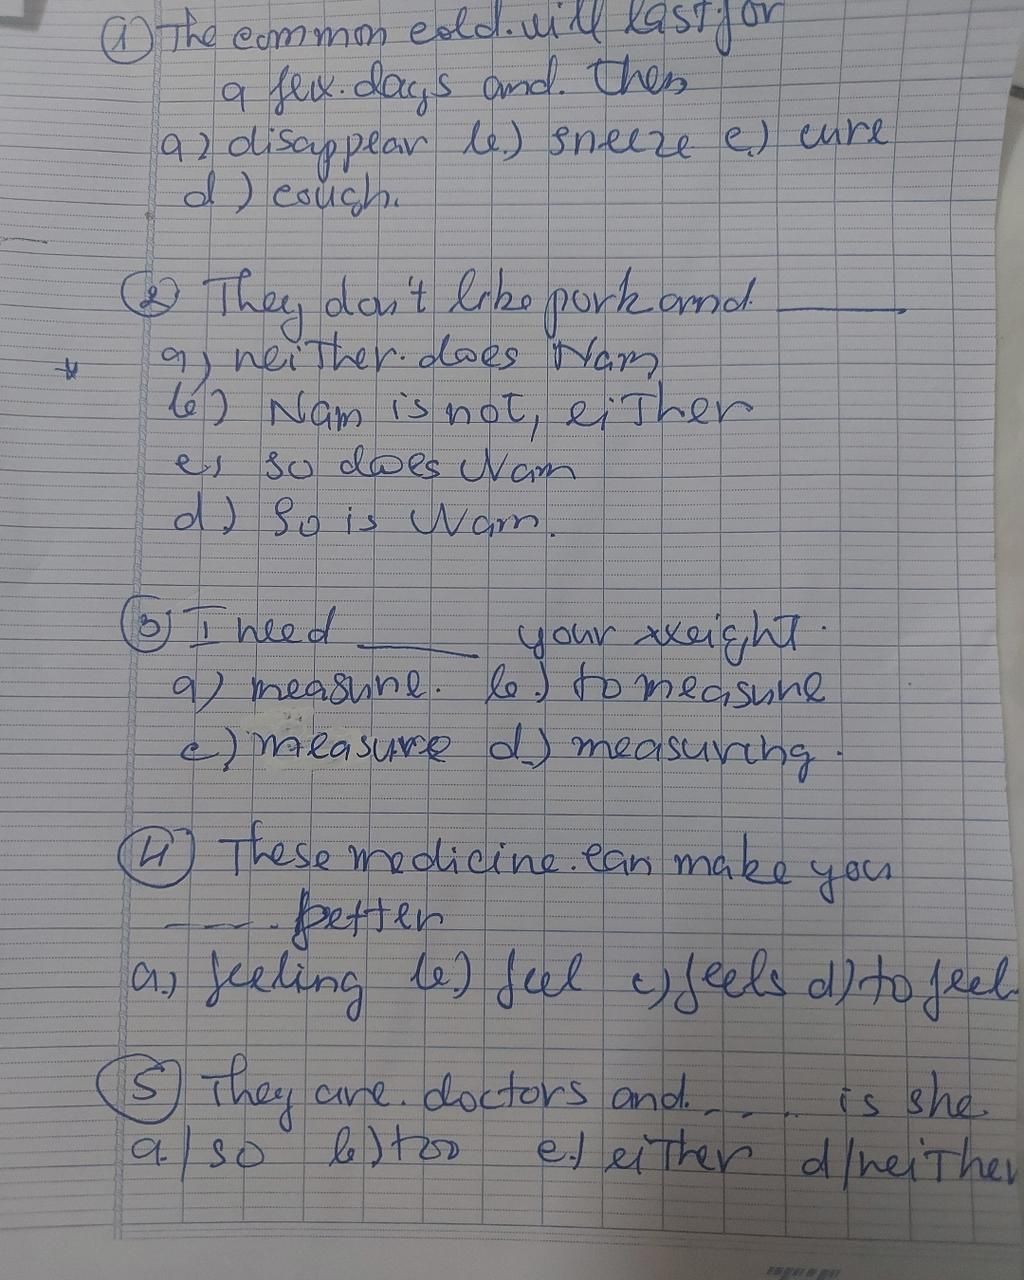 ① The common cold will last for
a few days and then
a) disappear b.) sneeze c) cure
d) cough.
② They don't like pork and ______
a) neither does Nam
b) Nam is not, either
c) so does Nam
d) So is Nam.
③ I need ______ your weight.
a) measure. b.) to measure
c) measure d.) measuring.
④ These medicine can make you
____. better
a) feeling b) feel c) feels d) to feel
⑤ They are doctors and .... is she
a/ so b) too c) either d/ neither